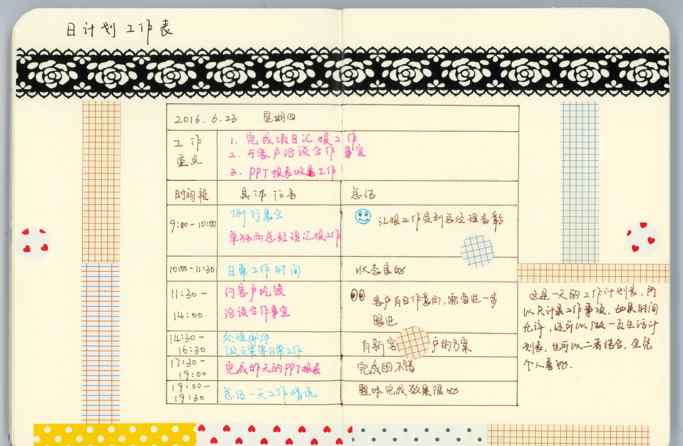 日计划工作表
2016.6.23 星期四
工作
重点
1. 完成项目汇报工作
2. 与客户洽谈合作事宜
3. PPT报表收集工作
时间段
具体行为
总结
9:00-10:00
例行晨会
单独向总经理汇报工作
10:00-11:30
日常工作时间
状态良好
11:30-
14:00
约客户吃饭
洽谈合作事宜
客户有合作意向,需要进一步
跟进
14:30-
16:30
处理邮件
有新客 户的方案
17:30-
19:00
完成昨天的PPT报表
完成的不错
19:00-
19:30
总结一天工作情况
整体完成效果很好
这是一天的工作计划表,所
以只计算工作事项,如果时间
允许,还可以做一页生活计
划表,也可以二者结合,全凭
个人喜好.